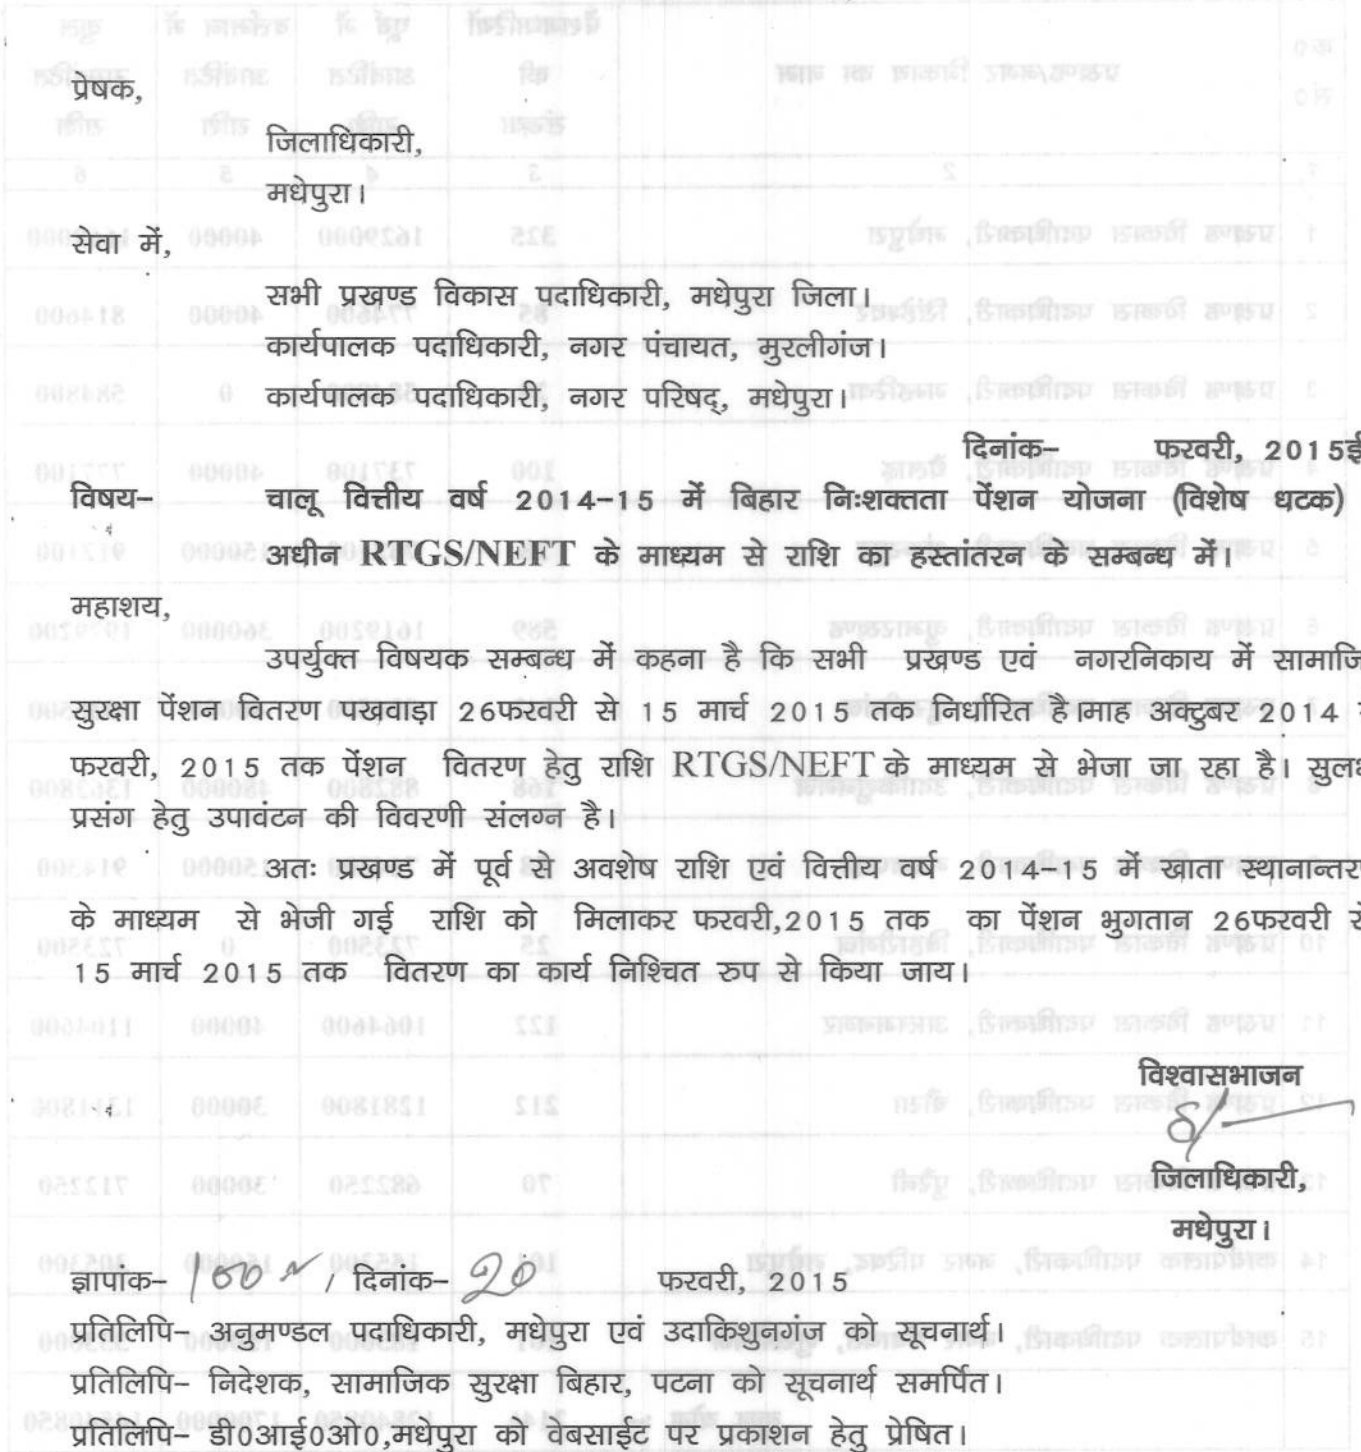 प्रेषक,
जिलाधिकारी,
मधेपुरा।
सेवा में,
सभी प्रखण्ड विकास पदाधिकारी, मधेपुरा जिला।
कार्यपालक पदाधिकारी, नगर पंचायत, मुरलीगंज।
कार्यपालक पदाधिकारी, नगर परिषद्, मधेपुरा।
दिनांक– फरवरी, 2015ई
विषय– चालू वित्तीय वर्ष 2014–15 में बिहार निःशक्तता पेंशन योजना (विशेष धटक)
अधीन RTGS/NEFT के माध्यम से राशि का हस्तांतरन के सम्बन्ध में।
महाशय,
उपर्युक्त विषयक सम्बन्ध में कहना है कि सभी प्रखण्ड एवं नगरनिकाय में सामाजि
सुरक्षा पेंशन वितरण पखवाड़ा 26फरवरी से 15 मार्च 2015 तक निर्धारित है।माह अक्टुबर 2014
फरवरी, 2015 तक पेंशन वितरण हेतु राशि RTGS/NEFT के माध्यम से भेजा जा रहा है। सुलभ
प्रसंग हेतु उपावंटन की विवरणी संलग्न है।
अतः प्रखण्ड में पूर्व से अवशेष राशि एवं वित्तीय वर्ष 2014–15 में खाता स्थानान्तरण
के माध्यम से भेजी गई राशि को मिलाकर फरवरी,2015 तक का पेंशन भुगतान 26फरवरी से
15 मार्च 2015 तक वितरण का कार्य निश्चित रुप से किया जाय।
विश्वासभाजन
जिलाधिकारी,
मधेपुरा।
ज्ञापांक– / दिनांक– 20 फरवरी, 2015
प्रतिलिपि– अनुमण्डल पदाधिकारी, मधेपुरा एवं उदाकिशुनगंज को सूचनार्थ।
प्रतिलिपि– निदेशक, सामाजिक सुरक्षा बिहार, पटना को सूचनार्थ समर्पित।
प्रतिलिपि– डी0आई0ओ0,मधेपुरा को वेबसाईट पर प्रकाशन हेतु प्रेषित।